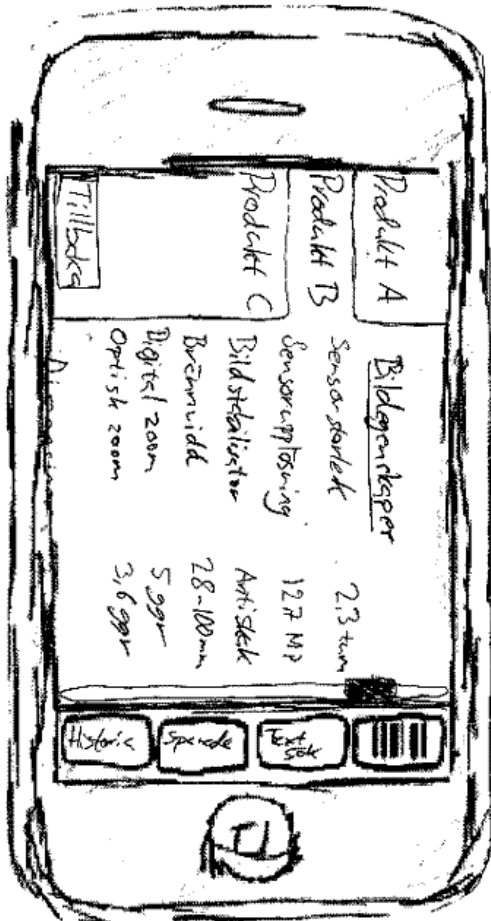 Produkt A
Produkt B
Produkt C
Tillbaka
Bildegenskaper
Sensorstorlek 2,3 tum
Sensorupplösning 127 MP
Bildstabilisator Antiskak
Brännvidd 28-100mm
Digital zoom 5 ggr
Optisk zoom 3,6 ggr
Text
sök
Sparade
Historia